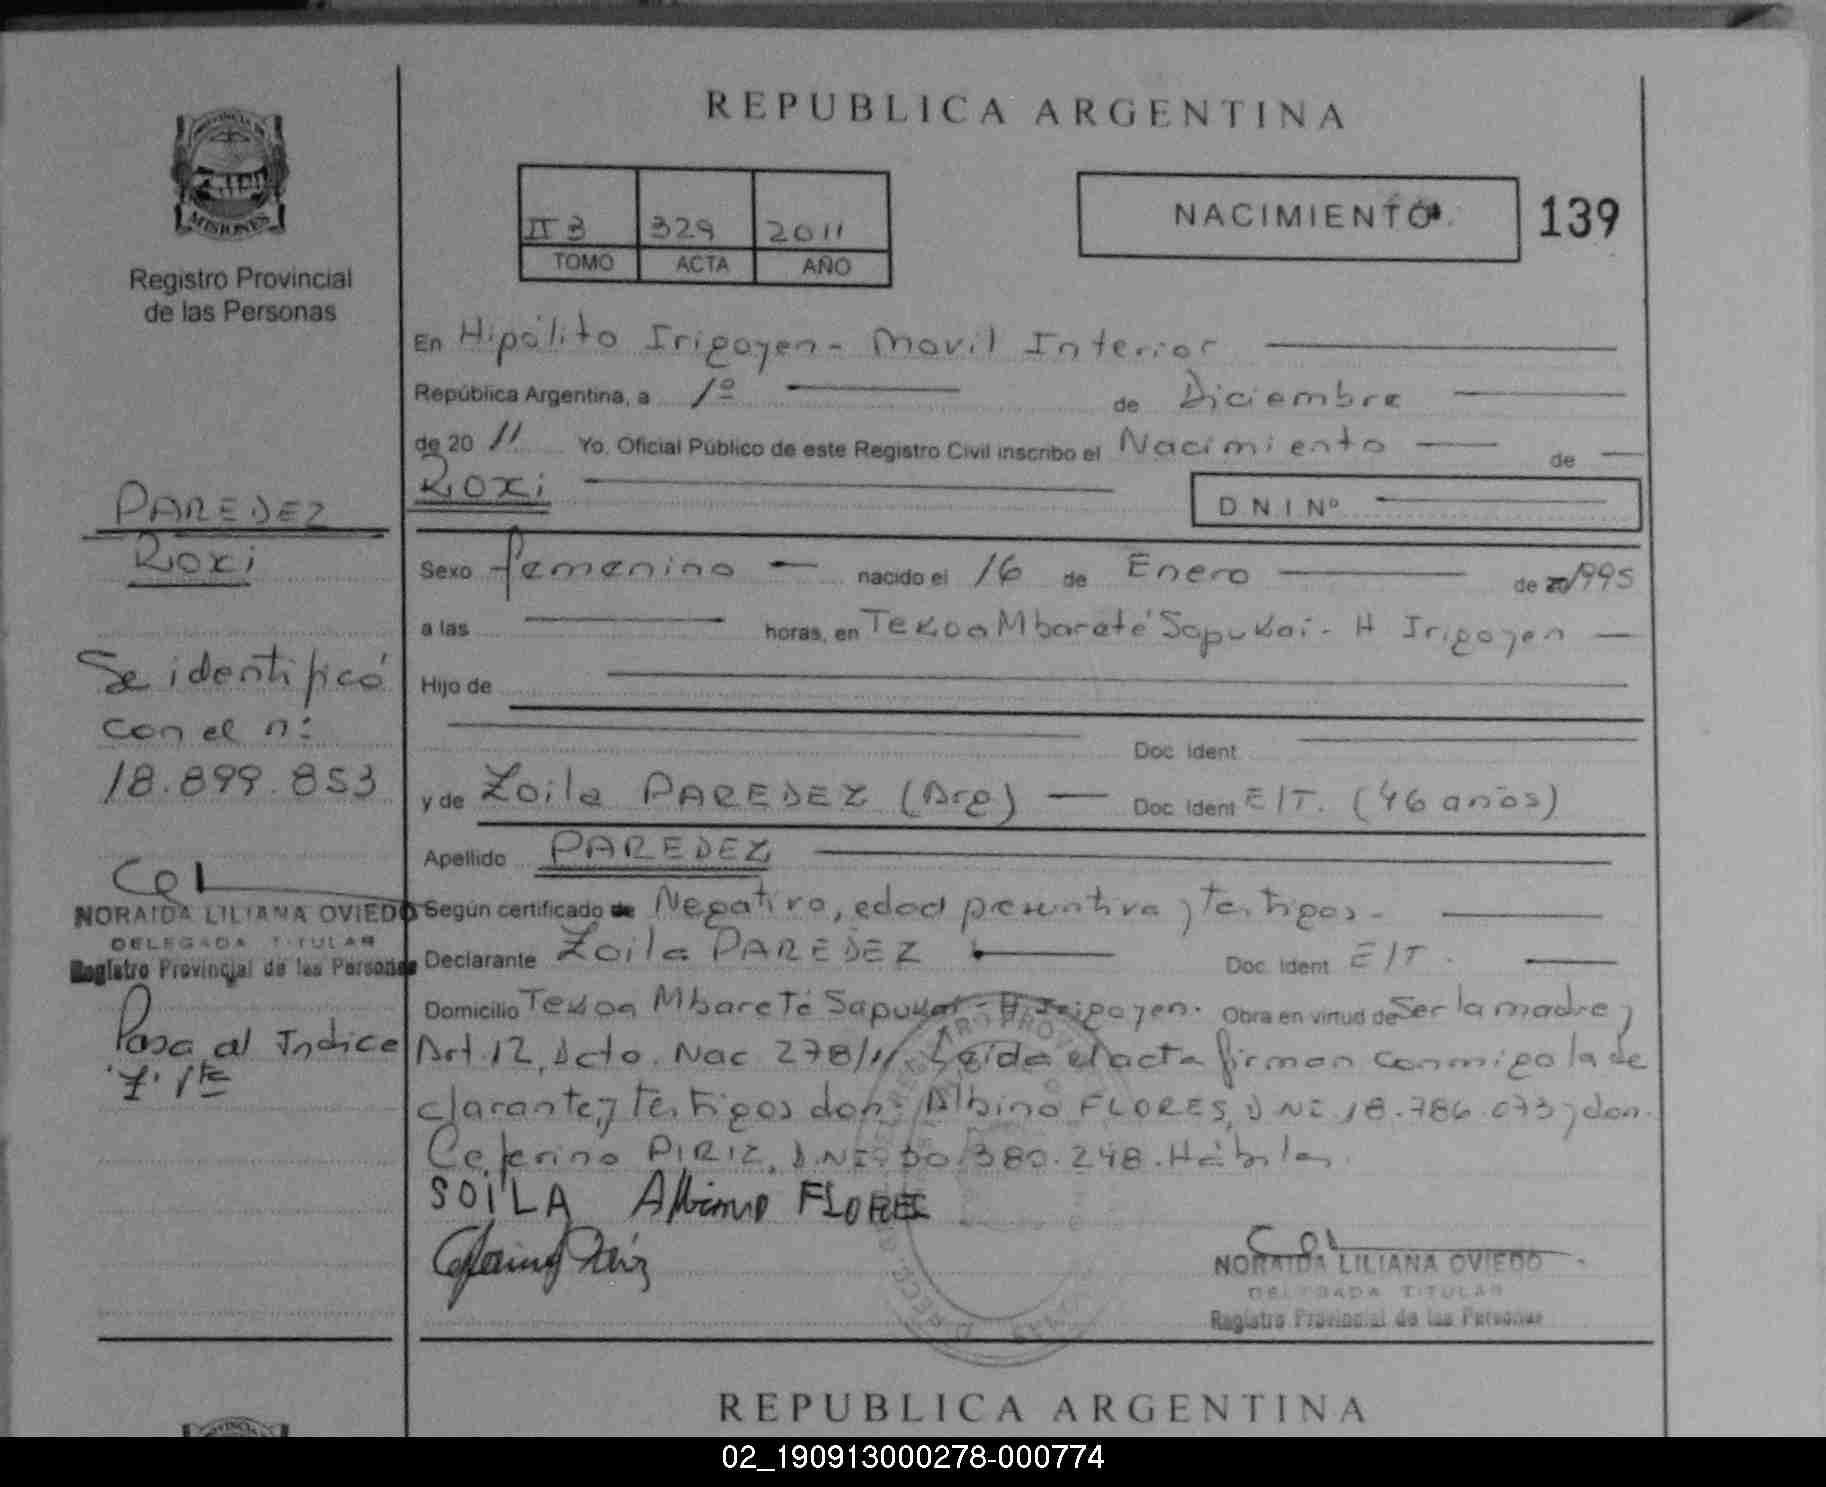 REPUBLICA ARGENTINA
PROVINCIA DE
MISIONES
Registro Provincial
de las Personas
II 3 329 2011
TOMO ACTA AÑO
NACIMIENTO 139
En Hipólito Irigoyen - Movil Interior
República Argentina, a 1º de Diciembre
de 20 11 Yo, Oficial Público de este Registro Civil inscribo el Nacimiento de
Roxi D N I Nº
Sexo femenino nacido el 16 de Enero de 20 1995
a las horas, en Tekoa Mbareté Sapukai - H Irigoyen
Hijo de
Doc. Ident.
y de Zoila PAREDEZ (Arg) Doc. Ident E/T. (46 años)
Apellido PAREDEZ
Según certificado de Negativo, edad presuntiva y testigos -
Declarante Zoila PAREDEZ Doc. Ident E/T.
Domicilio Tekoa Mbareté Sapukai - H Irigoyen. Obra en virtud de Ser la madre y
Art. 12, Dcto. Nac 278/11. Leída el acta firman conmigo la de
clarante y testigos don: Albino FLORES, DNI. 18.786.073 y don.
Ceferino PIRIZ, D.NI. 30.380.248. Hábiles.
SOILA Albino FLORES
Ceferino Piriz
NORAIDA LILIANA OVIEDO
DELEGADA TITULAR
Registro Provincial de las Personas
PAREDEZ
Roxi
Se identificó
con el n:
18.899.853
NORAIDA LILIANA OVIEDO
DELEGADA TITULAR
Registro Provincial de las Personas
Pasa al Indice
REPUBLICA ARGENTINA
02_190913000278-000774